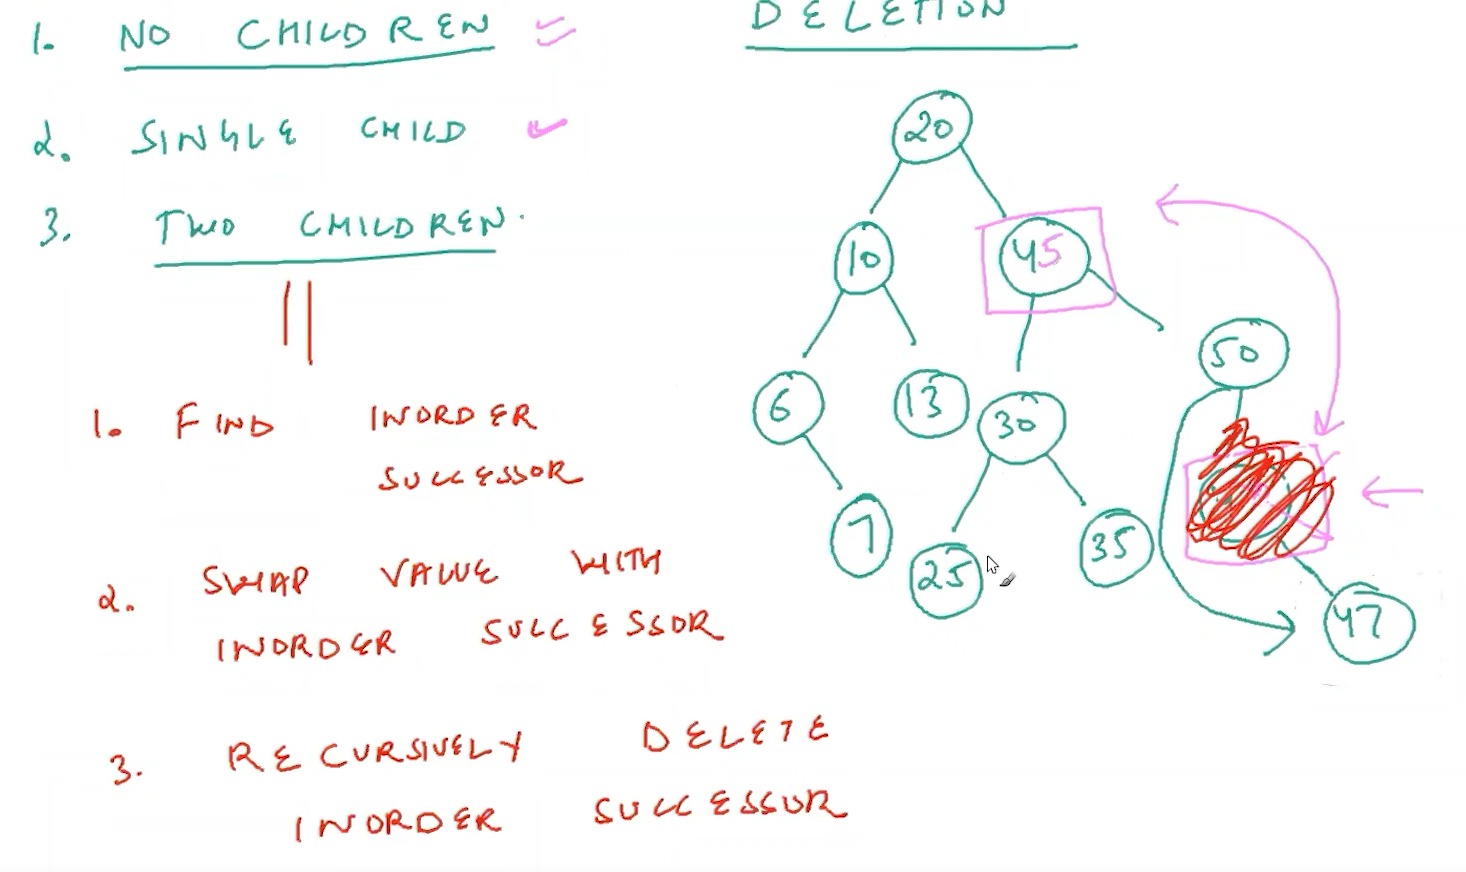 DELETION
1. NO CHILDREN
2. SINGLE CHILD
3. TWO CHILDREN.
1. FIND INORDER
SUCCESSOR
2. SWAP VALUE WITH
INORDER SUCCESSOR
3. RECURSIVELY DELETE
INORDER SUCCESSOR
20
10 45
50
6 13 30
7 25 35
47